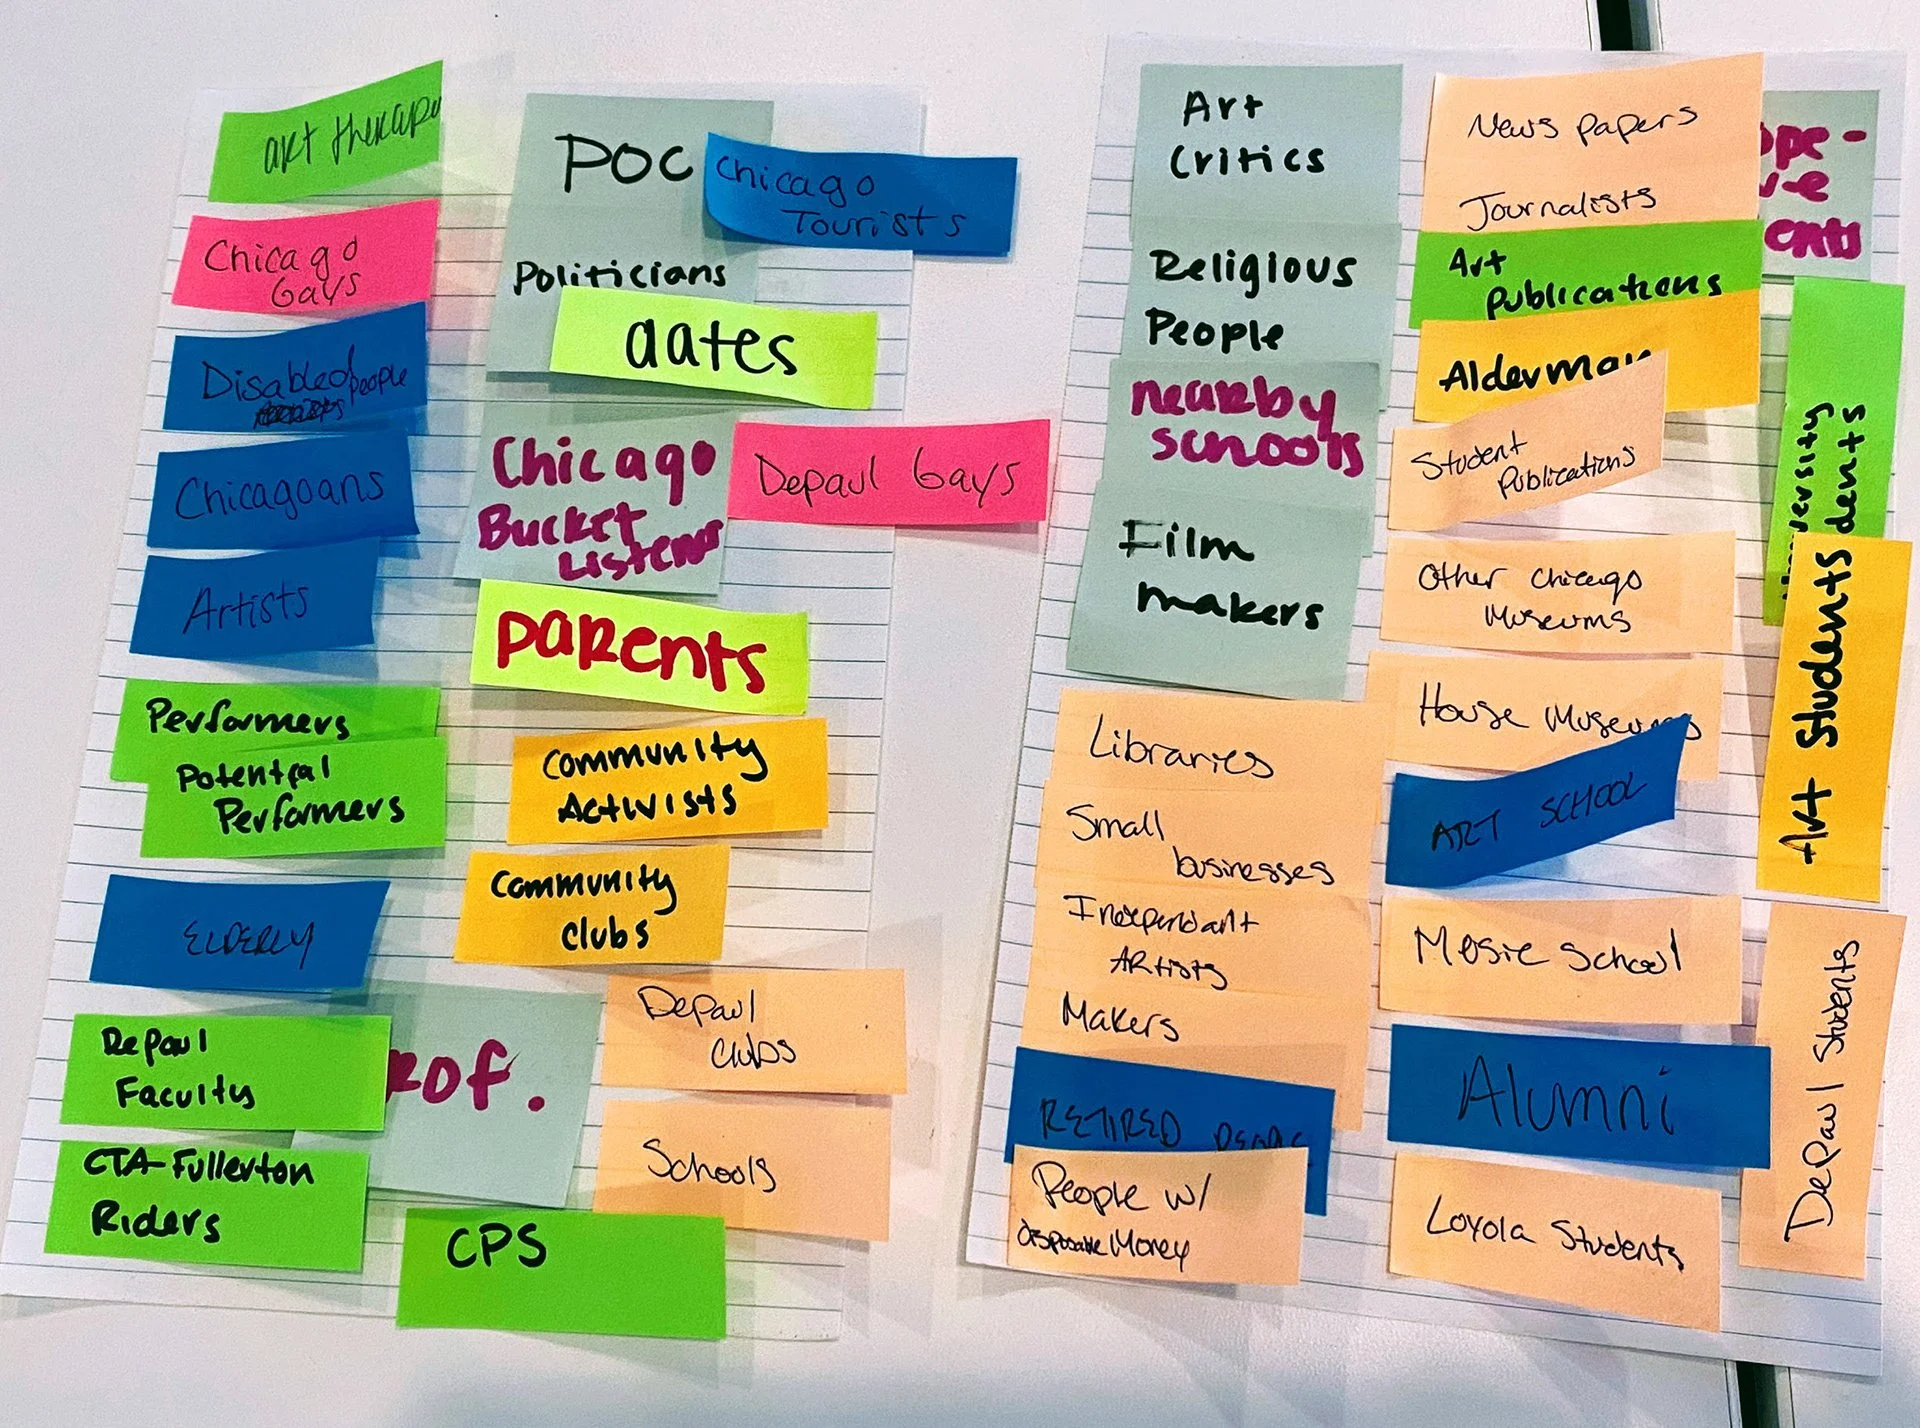 art therapy
Chicago
Gays
Disabled people
Chicagoans
Artists
Performers
Potential
Performers
ELDERLY
Depaul
Faculty
CTA-Fullerton
Riders
POC
Chicago
Tourists
Politicians
dates
Chicago
Bucket
Listener
Depaul Gays
PARENTS
COMMUNITY
ACTIVISTS
COMMUNITY
Clubs
rof.
DePaul
Clubs
Schools
CPS
Art
Critics
Religious
People
nearby
schools
Film
makers
Libraries
Small
businesses
Independant
ARtists
Makers
RETIRED
People w/
disposable Money
News papers
Journalists
Art
publications
Alderman
Student
Publications
Other Chicago
Museums
House Museums
ART SCHOOL
Mosic School
Alumni
Loyola Students
ope-
ents
ersity
dents
Art Students
DePaul Students